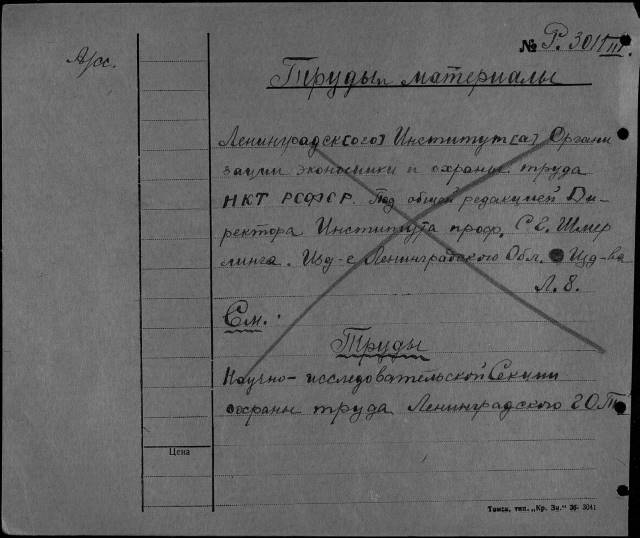 № Р. 3011 III.
А/сс.
Труды и материалы
Ленинградск[ого] Институт[а] Органи
зации экономики и охраны труда
НКТ РСФСР. Под общей редакцией Ди-
ректора Института проф. С. Е. Шмер
линга. Изд-е Ленинградского Обл. Изд-ва
Л. 8.
См.:
Труды
Научно-исследовательской Секции
охраны труда Ленинградского
Цена
Томск, тип. „Кр. Зн." 36- 3041